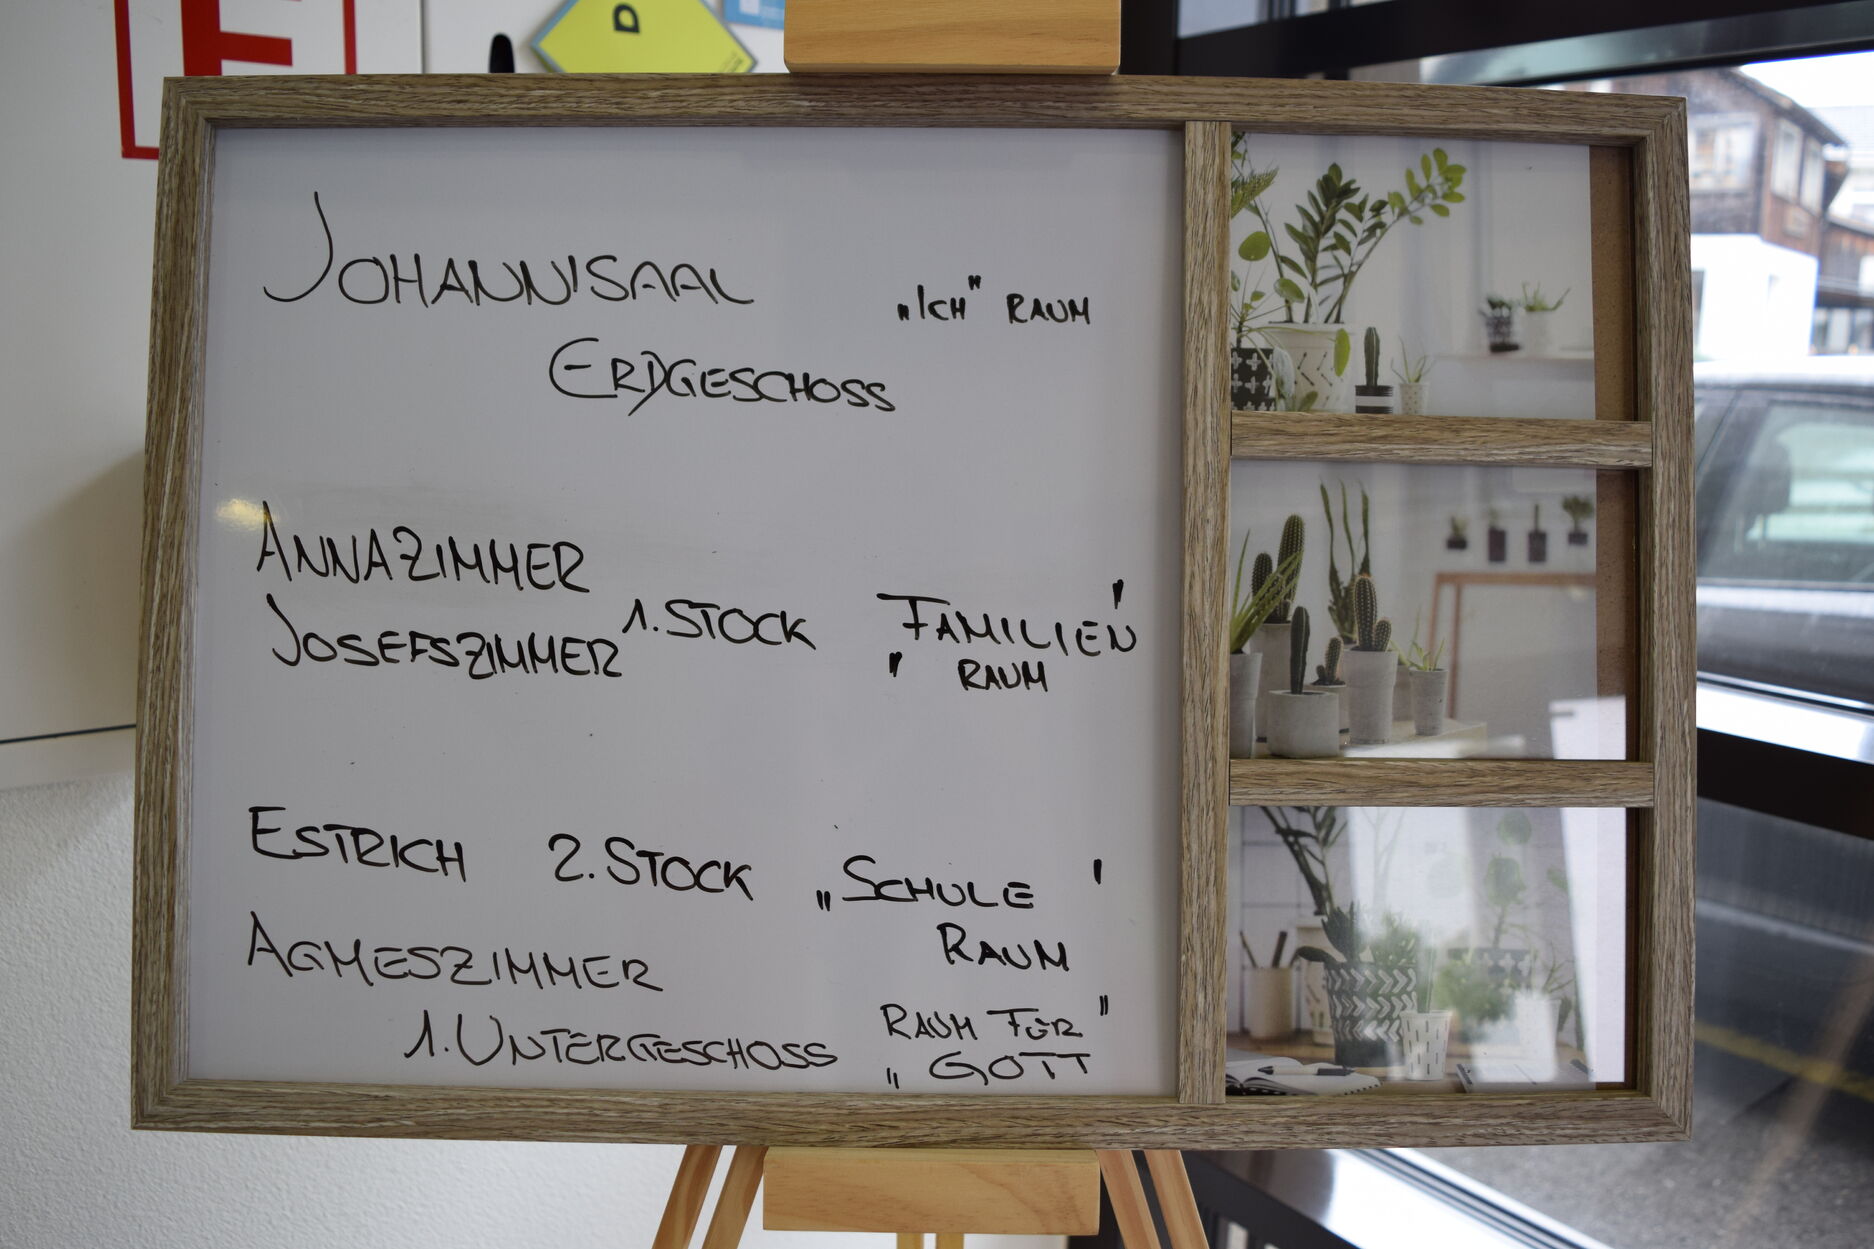 E
D
JOHANNISAAL
„ICH" RAUM
ERDGESCHOSS
ANNAZIMMER
JOSEFSZIMMER 1. STOCK
„FAMILIEN"
RAUM
ESTRICH 2. STOCK „SCHULE"
RAUM
AGNESZIMMER
1. UNTERGESCHOSS
RAUM FÜR"
„GOTT